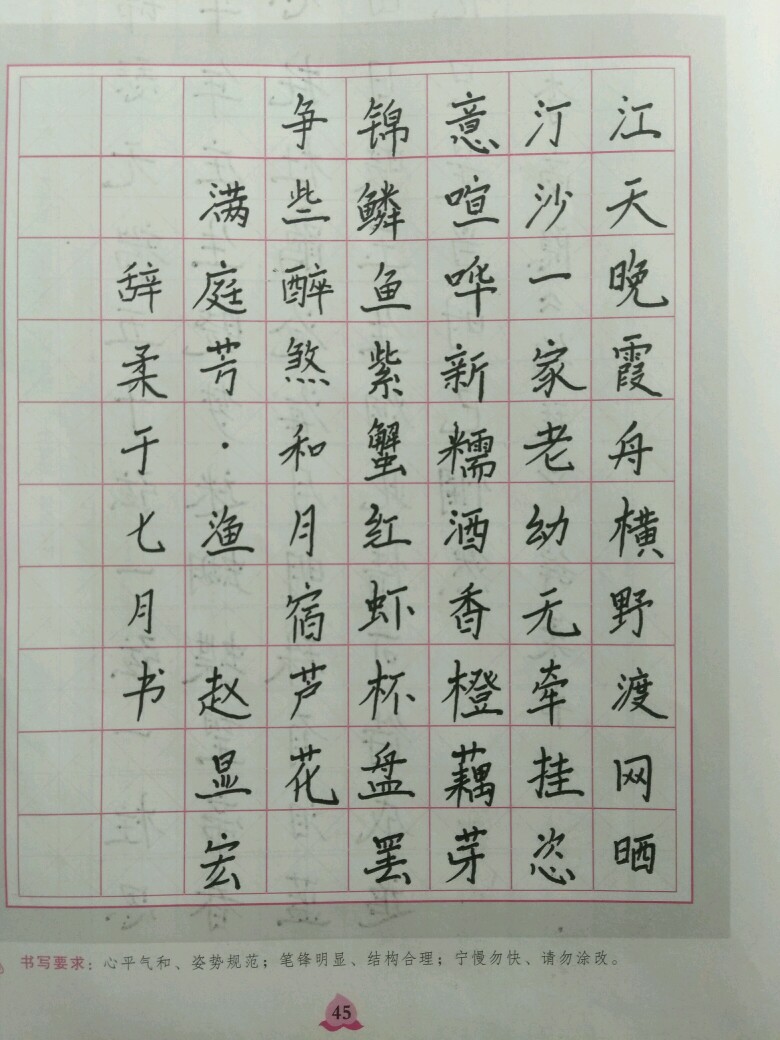 江天晚霞舟横野渡网晒
汀沙一家老幼无牵挂恣
意喧哗新糯酒香橙藕芽
锦鳞鱼紫蟹红虾杯盘罢
争些醉煞和月宿芦花
满庭芳·渔 赵显宏
辞柔于七月书
书写要求：心平气和、姿势规范；笔锋明显、结构合理；宁慢勿快、请勿涂改。
45